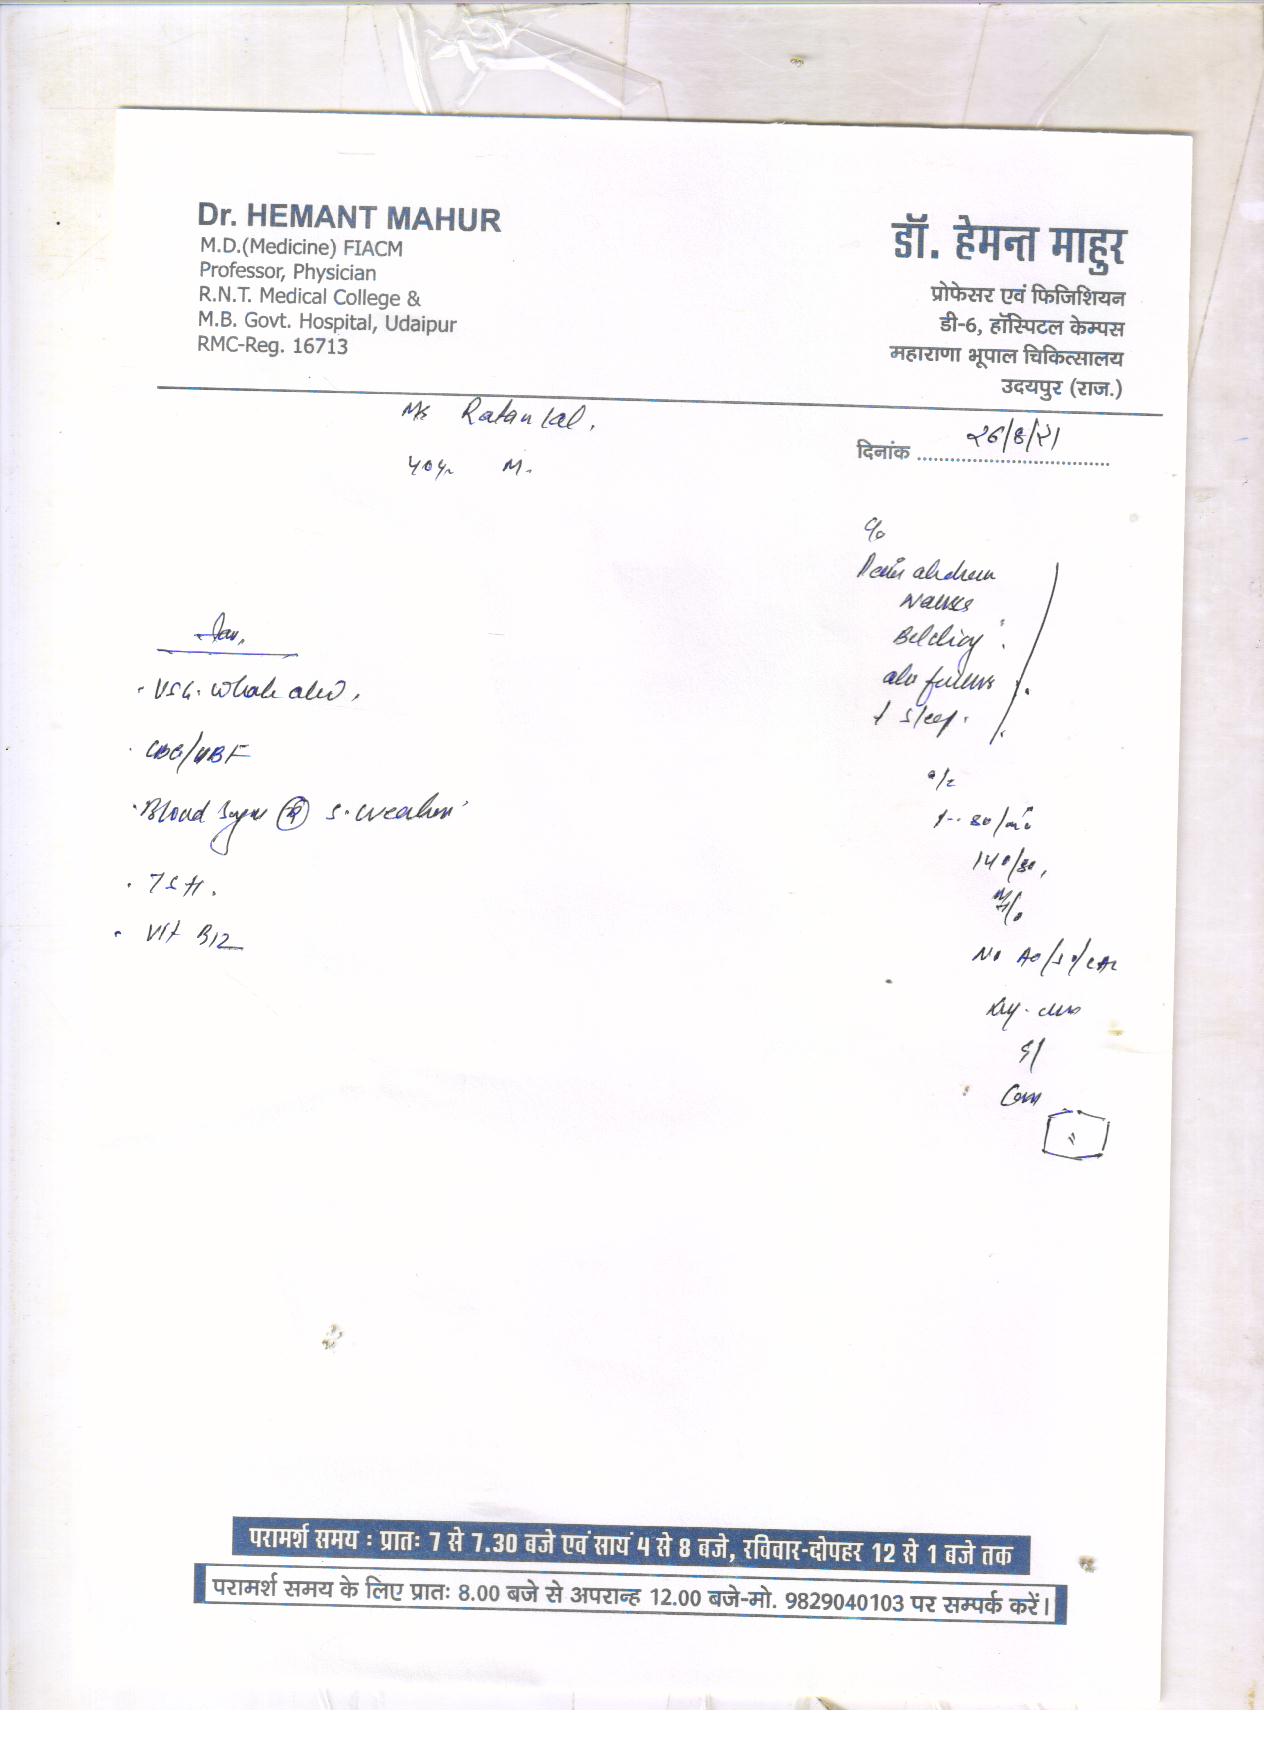 Dr. HEMANT MAHUR
M.D.(Medicine) FIACM
Professor, Physician
R.N.T. Medical College &
M.B. Govt. Hospital, Udaipur
RMC-Reg. 16713
डॉ. हेमन्त माहुर
प्रोफेसर एवं फिजिशियन
डी-6, हॉस्पिटल केम्पस
महाराणा भूपाल चिकित्सालय
उदयपुर (राज.)
Ratan lal,
40 yr M.
दिनांक
c/o
Pain abdomen
Nausea
Belching
abd fullness
↓ sleep.
o/e
80/mi
140/80,
No
CVS
CNS
USG. whole abd,
CBC/
Blood Sugar (R) S. creatinine
TSH.
Vit B12
परामर्श समय : प्रातः 7 से 7.30 बजे एवं सायं 4 से 8 बजे, रविवार-दोपहर 12 से 1 बजे तक
परामर्श समय के लिए प्रातः 8.00 बजे से अपरान्ह 12.00 बजे-मो. 9829040103 पर सम्पर्क करें।